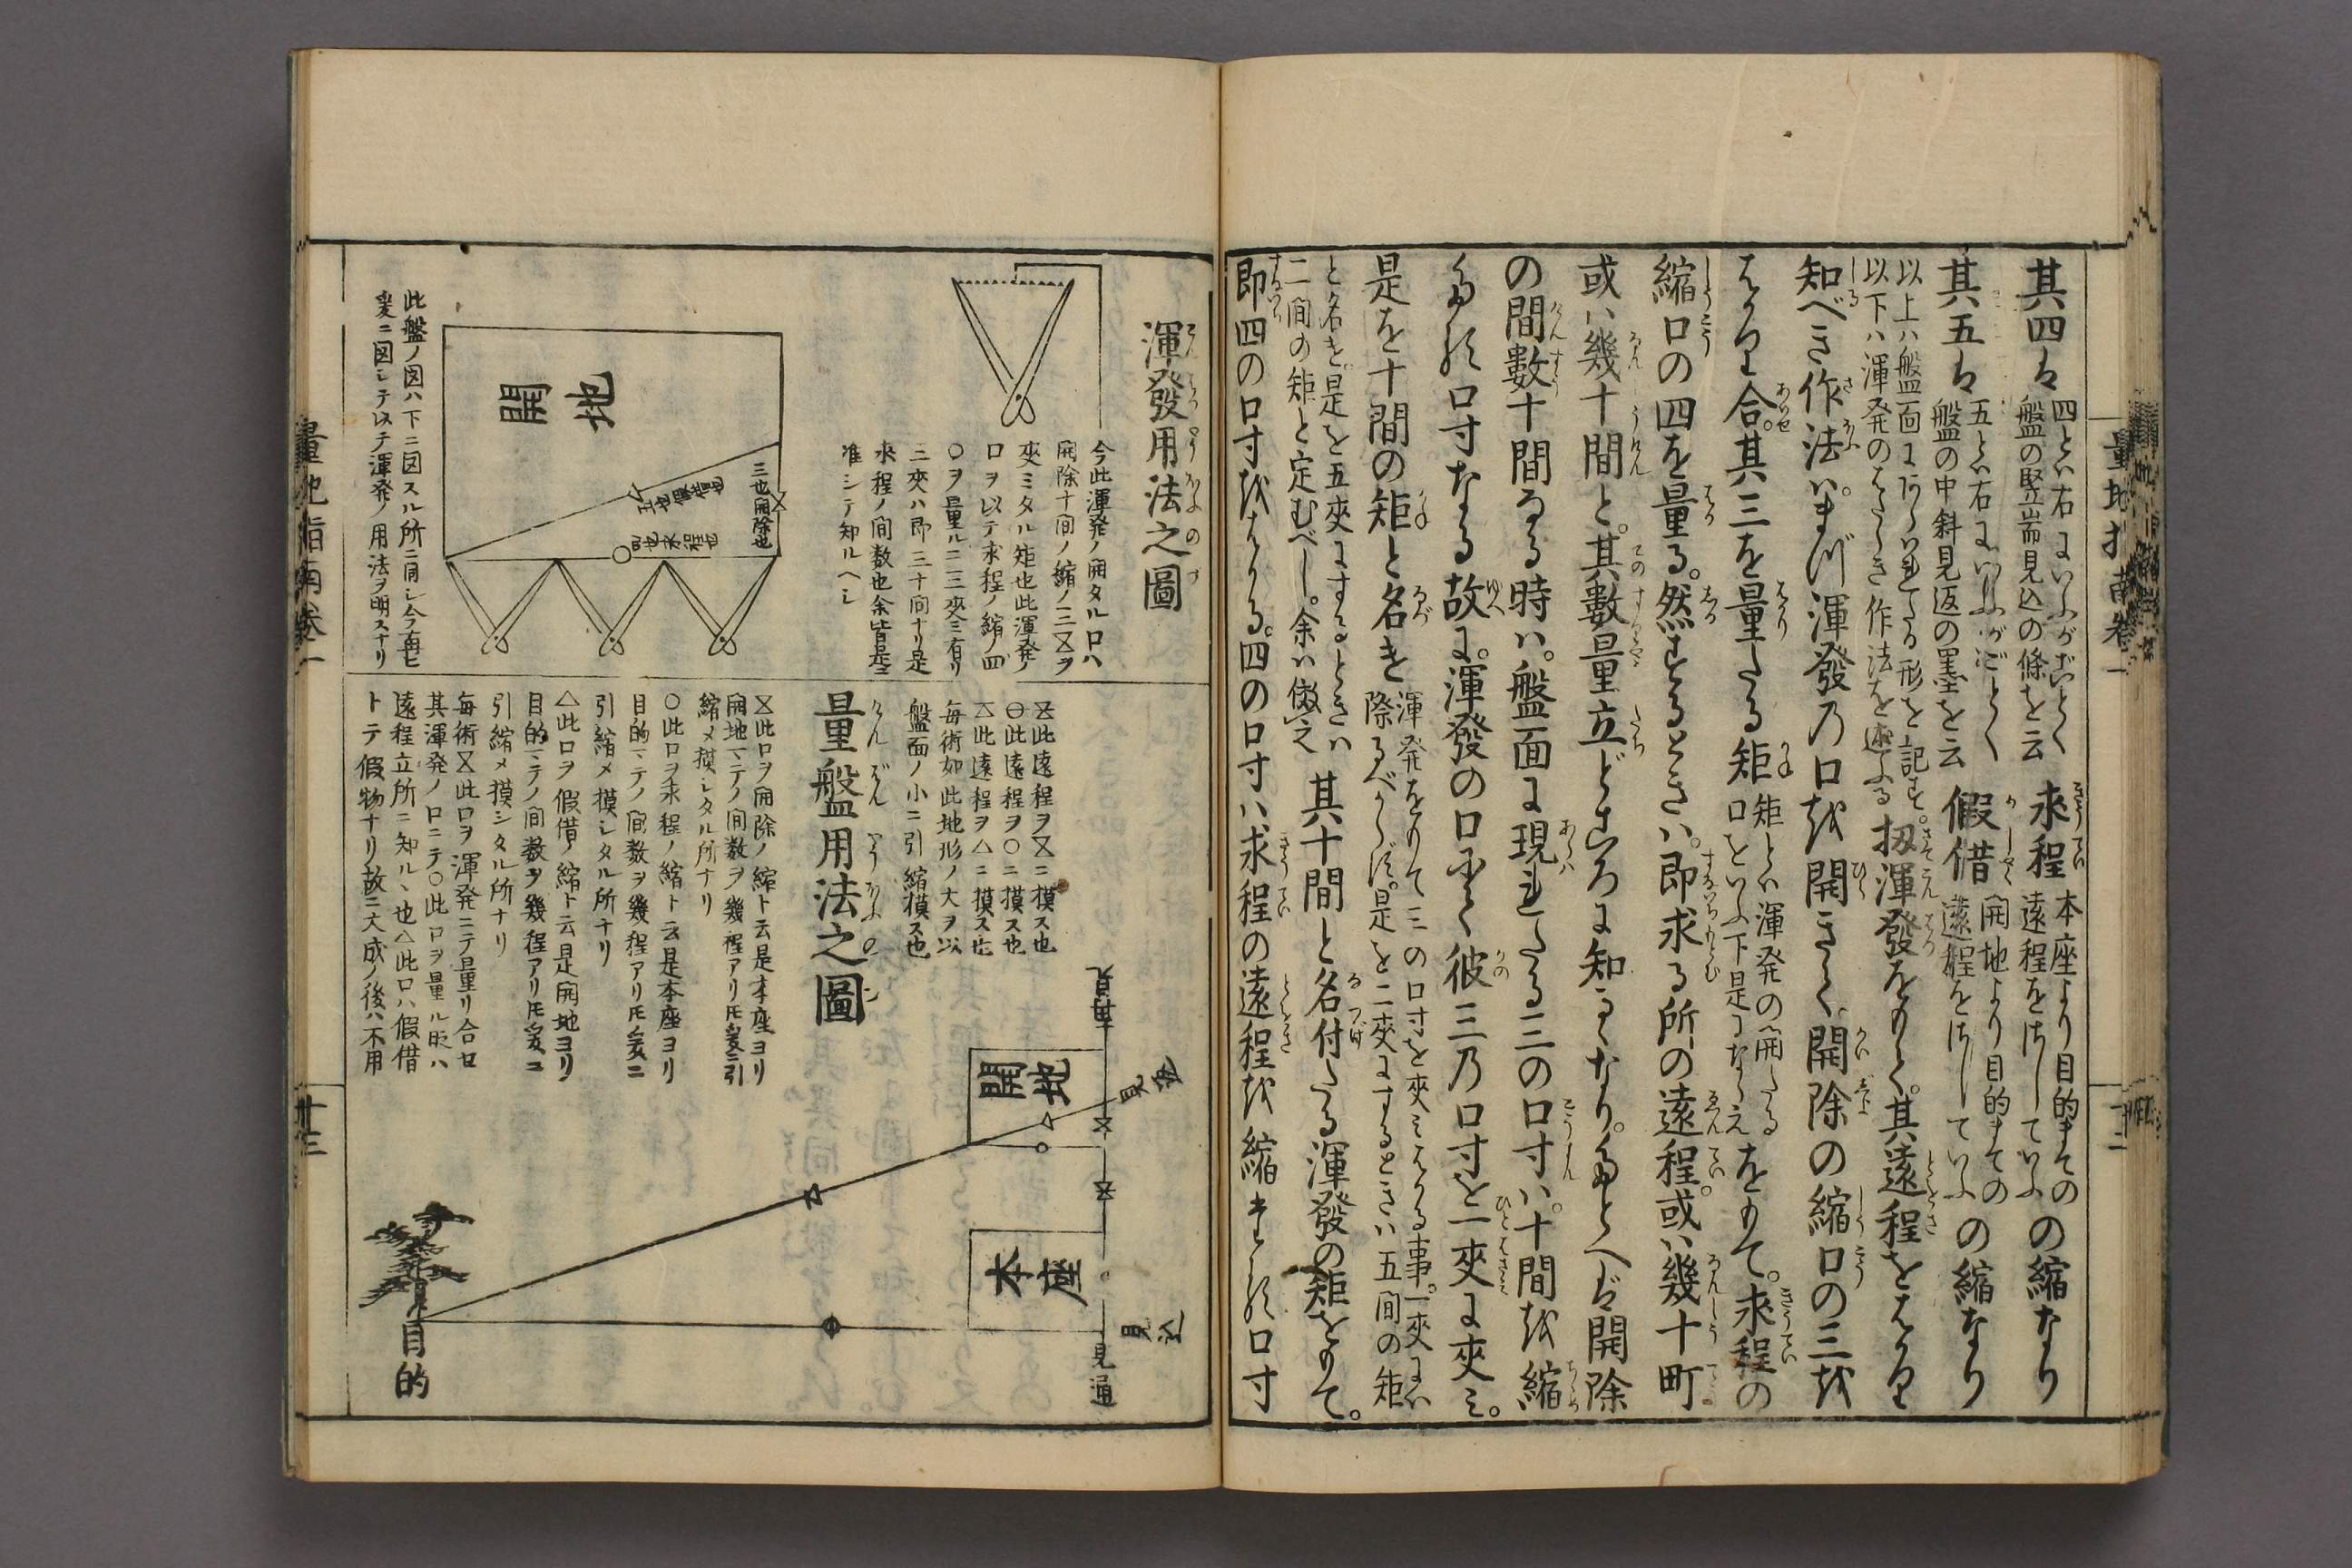 其四ハ
四とハ右にいふがごとく
盤の竪端見込の條を云
求程
本座より目的までの
遠程をさしていふ
の縮なり
其五ハ
五とハ右にいふがごとく
盤の中斜見返の墨を云
假借
開地より目的までの
遠程をさしていふ
の縮なり
以上ハ盤面に
形を記す。
以下ハ渾発のはたらき作法を述ふる
扨渾發をもつて。其遠程をはかり
知べき作法ハ。まづ渾發乃口を開きて。開除の縮口の三を
はかり合。其三を量たる矩
矩とハ渾発の開たる
口をいふ下是にならえ
をもて。求程の
縮口の四を量る。然するときハ。即求る所の遠程。或ハ幾十町
或ハ幾十間と。其數量立どころに知るゝなり。たとへば開除
の間數十間なる時ハ。盤面に現れたる三の口寸ハ。十間を縮
たる口寸なる故に。渾發の口にて彼三乃口寸を一夾に夾ミ。
是を十間の矩と名を
渾発をもつて三の口寸を夾ミはかる事。一夾にハ
際るべからず。是を二夾にするときハ五間の矩
と名を。是を五夾にするときハ
二間の矩と定むべし。余ハ倣之
其十間と名付たる渾發の矩をもて。
即四の口寸をはかる。四の口寸ハ求程の遠程を縮たる口寸
量地指南卷一
渾發用法之圖
今此渾発ノ開タル口ハ
開除十間ノ縮ノ三⧖ヲ
夾ミタル矩也此渾発ノ
口ヲ以テ求程ノ縮ノ四
○ヲ量ルニ三夾ミ有リ
三夾ハ即三十間ナリ是
求程ノ間数也余皆是ニ
准シテ知ルヘシ
開地
三也開除也
五也假借也
四也求程也
此盤ノ図ハ下ニ図スル所ニ同シ今再ヒ
爰ニ図シテ以テ渾発ノ用法ヲ明スナリ
此遠程ヲ⧖ニ摸ス也
此遠程ヲ○ニ摸ス也
此遠程ヲ△ニ摸ス也
毎術如此地形ノ大ヲ以
盤面ノ小ニ引縮摸ス也
量盤用法之圖
⧖此口ヲ開除ノ縮ト云是本座ヨリ
開地マテノ間数ヲ幾程アリ𪜈爰ニ引
縮メ摸シタル所ナリ
○此口ヲ求程ノ縮ト云是本座ヨリ
目的マテノ間数ヲ幾程アリ𪜈爰ニ
引縮メ摸シタル所ナリ
△此口ヲ假借ノ縮ト云是開地ヨリ
目的マテノ間数ヲ幾程アリ𪜈爰ニ
引縮メ摸シタル所ナリ
毎術⧖此口ヲ渾発ニテ量リ合セ
其渾発ノ口ニテ○此口ヲ量ル時ハ
遠程立所ニ知ルヽ也△此口ハ假借
トテ假物ナリ故ニ大成ノ後ハ不用
開地
本座
見込
見通
目的
量地指南卷一
十三